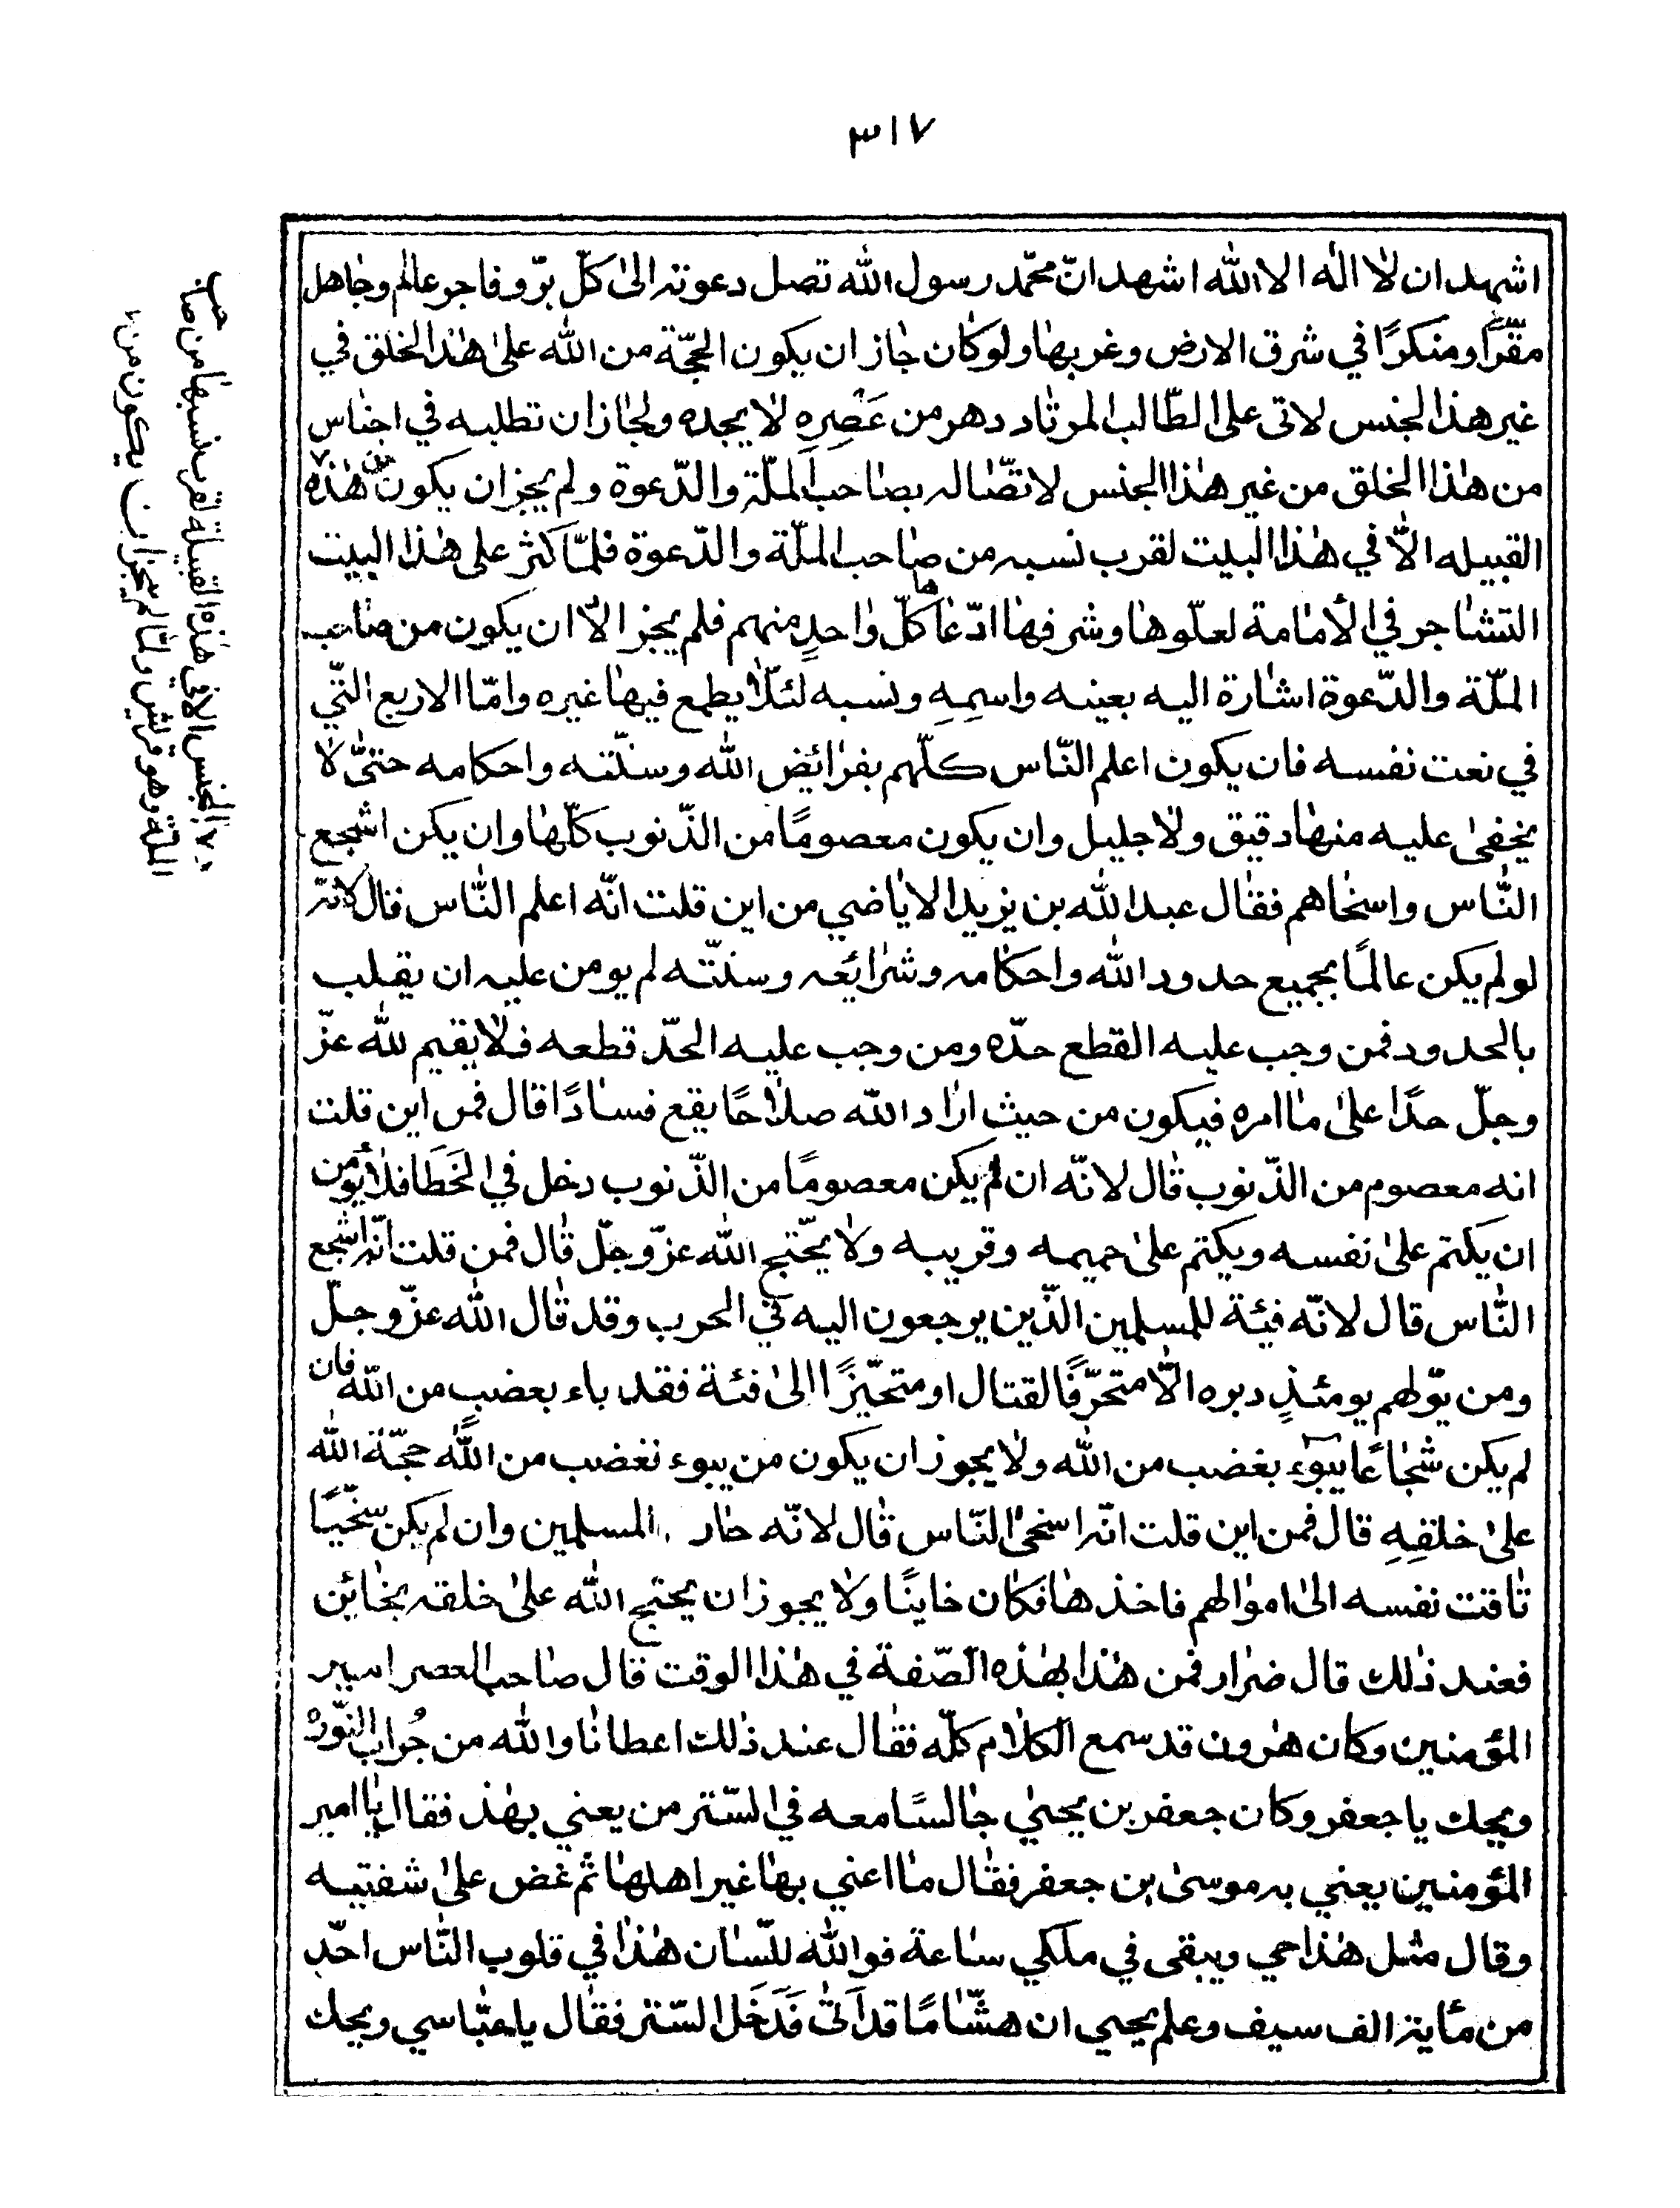 ٣١٧
اشهد ان لا اله الا الله اشهد انّ محمّد رسول الله تصل دعوته الى كلّ برّ و فاجر عالم وجاهل
مقرًّا ومنكرًا في شرق الارض وغربها ولو كان جاز ان يكون الحجّة من الله على هذا الخلق في
غير هذا الجنس لاتى على الطّالب المرتاد دهر من عَصْرِهِ لا يجده ولجاز ان تطلبه في اجناس
من هذا الخلق من غير هذا الجنس لاتّصاله بصاحب الملّة والدّعوة ولم يجز ان يكون من هذه
القبيله الاّ في هذا البيت لقرب نسبه من صاحب الملّة والدّعوة فلمّا كثر على هذا البيت
التشاجر في الأمامة لعلّوها وشرفها ادّعاها كلّ واحدٍ منهم فلم يجز الاّ ان يكون من صاحب
الملّة والدّعوة اشارة اليه بعينه واسمِهِ ونسبه لئلّا يطمع فيها غيره وامّا الاربع التّي
في نعت نفسه فان يكون اعلم النّاس كلّهم بفرائض الله وسنّته واحكامه حتىّ لا
يخفى عليه منها دقيق ولا جليل وان يكون معصومًا من الذّنوب كلّها وان يكن اشجع
النّاس واسخاهم فقال عبد الله بن يزيد الاياضي من اين قلت انّه اعلم النّاس قال لانّه
لو لم يكن عالمًا بجميع حدود الله واحكامه وشرائعه وسنتّه لم يومن عليه ان يقلب
بالحدود فمن وجب عليه القطع حدّه ومن وجب عليه الحدّ قطعه فلا يقيم لله عزّ
وجلّ حدًا على ما امره فيكون من حيث اراد الله صلاحًا يقع فسادًا قال فمن اين قلت
انه معصوم من الذّنوب قال لانّه ان لم يكن معصومًا من الذّنوب دخل في الخَطَا فلا يؤمن
ان يكتم على نفسه ويكتم على حميمه وقريبه ولا يحّتج الله عزّ وجلّ قال فمن قلت انّه اشجع
النّاس قال لانّه فيئة للمسلمين الذّين يرجعون اليه في الحرب وقد قال الله عزّ وجلّ
ومن يوّلهم يومئذٍ دبره الاّ متحرّفًا لقتال او متحيّزًا الى فئة فقد باء بعضب من الله فان
لم يكن شجاعًا يبوء بغضب من الله ولا يجوز ان يكون من يبوء نغضب من الله حجّة الله
على خلقِهِ قال فمن اين قلت انّه اسخى النّاس قال لانّه خار المسلمين وان لم يكن سخّيًا
تاقت نفسه الى اموالهم فاخذها فكان خاينًا ولا يجوز ان يحتج الله على خلقه بخائن
فعند ذلك قال ضرار فمن هذا بهذه الصّفة في هذا الوقت قال صاحب العصر امير
المؤمنين وكان هرون قد سمع الكلام كلّه فقال عند ذلك اعطانا والله من جُراب النّوره
ويحك يا جعفر وكان جعفر بن يحيى جالسًا معه في السّتر من يعني بهذ فقال يا امير
المؤمنين يعني به موسى بن جعفر فقال ما اعني بها غير اهلها ثم غض على شفتيه
وقال مثل هذا حي ويبقى في ملكي ساعة فوالله للّسان هذا في قلوب النّاس احّد
من مأية الف سيف وعلم يحيي ان هشّامًا قد اَتى فَدَخَل السّتر فقال يا عبّاسي ويحك
٧ الجنس الا في هذه القبيلة لقرب نسبها من صاحب
الملّة وهو قريش ولمّا لم يجز ان يكون من